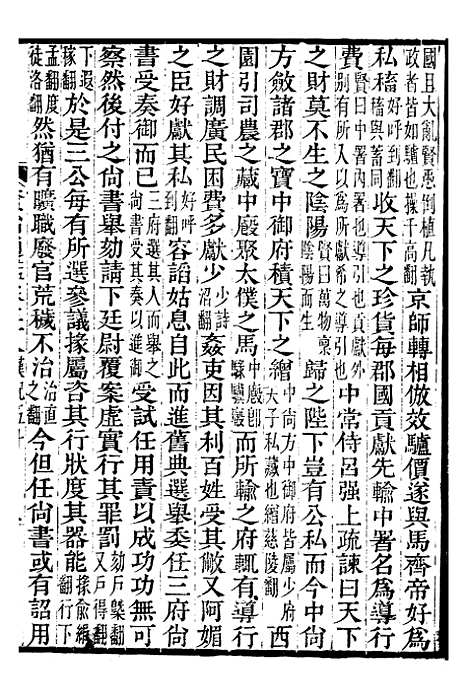 國且大亂賢愚倒植凡執政者皆如驢也操千高翻京師轉相倣效驢價遂與馬齊帝好爲
私稸好呼到翻稸與蓄同收天下之珍貨每郡國貢獻先輸中署名爲導行
費賢曰中署内署也貢獻外别有所入以爲所獻希之導引也中常侍呂强上疏諫曰天下
之財莫不生之陰陽賢曰萬物禀陰陽而生歸之陛下豈有公私而今中尚
方斂諸郡之寶中御府積天下之繒中尚方中御府皆屬少府天子私藏也繒慈陵翻西
園引司農之藏中廏聚太僕之馬中廏卽騄驥廏而所輸之府輒有導行
之財調廣民困費多獻少少詩沼翻姦吏因其利百姓受其敝又阿媚
之臣好獻其私好呼到翻容謟姑息自此而進舊典選舉委任三府尚
書受奏御而已二府選其人而舉之尚書受其奏以進御受試任用責以成功功無可
察然後付之尚書舉劾請下廷尉覆案虚實行其罪罰劾戶槩翻又戶得翻
下遐稼翻於是三公每有所選參議掾屬咨其行狀度其器能掾俞絹翻行下
孟翻度徒洛翻然猶有曠職廢官荒穢不治治直之翻今但任尚書或有詔用